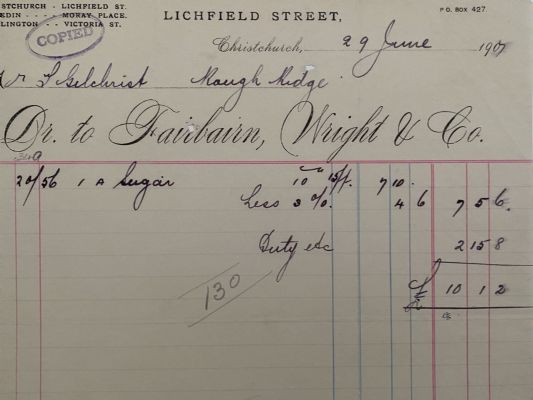 STCHURCH - LICHFIELD ST.
EDIN - - - - MORAY PLACE.
LINGTON - - VICTORIA ST.
COPIED
LICHFIELD STREET,
P.O. BOX 427.
Christchurch, 29 June 1907
Mr F Gilchrist Rough Ridge
Dr. to Fairbairn, Wright & Co.
20/56 1 A Sugar 7 10
Less 3 %. 4 6 7 5 6.
Duty etc 2 15 8
£ 10 1 2
130